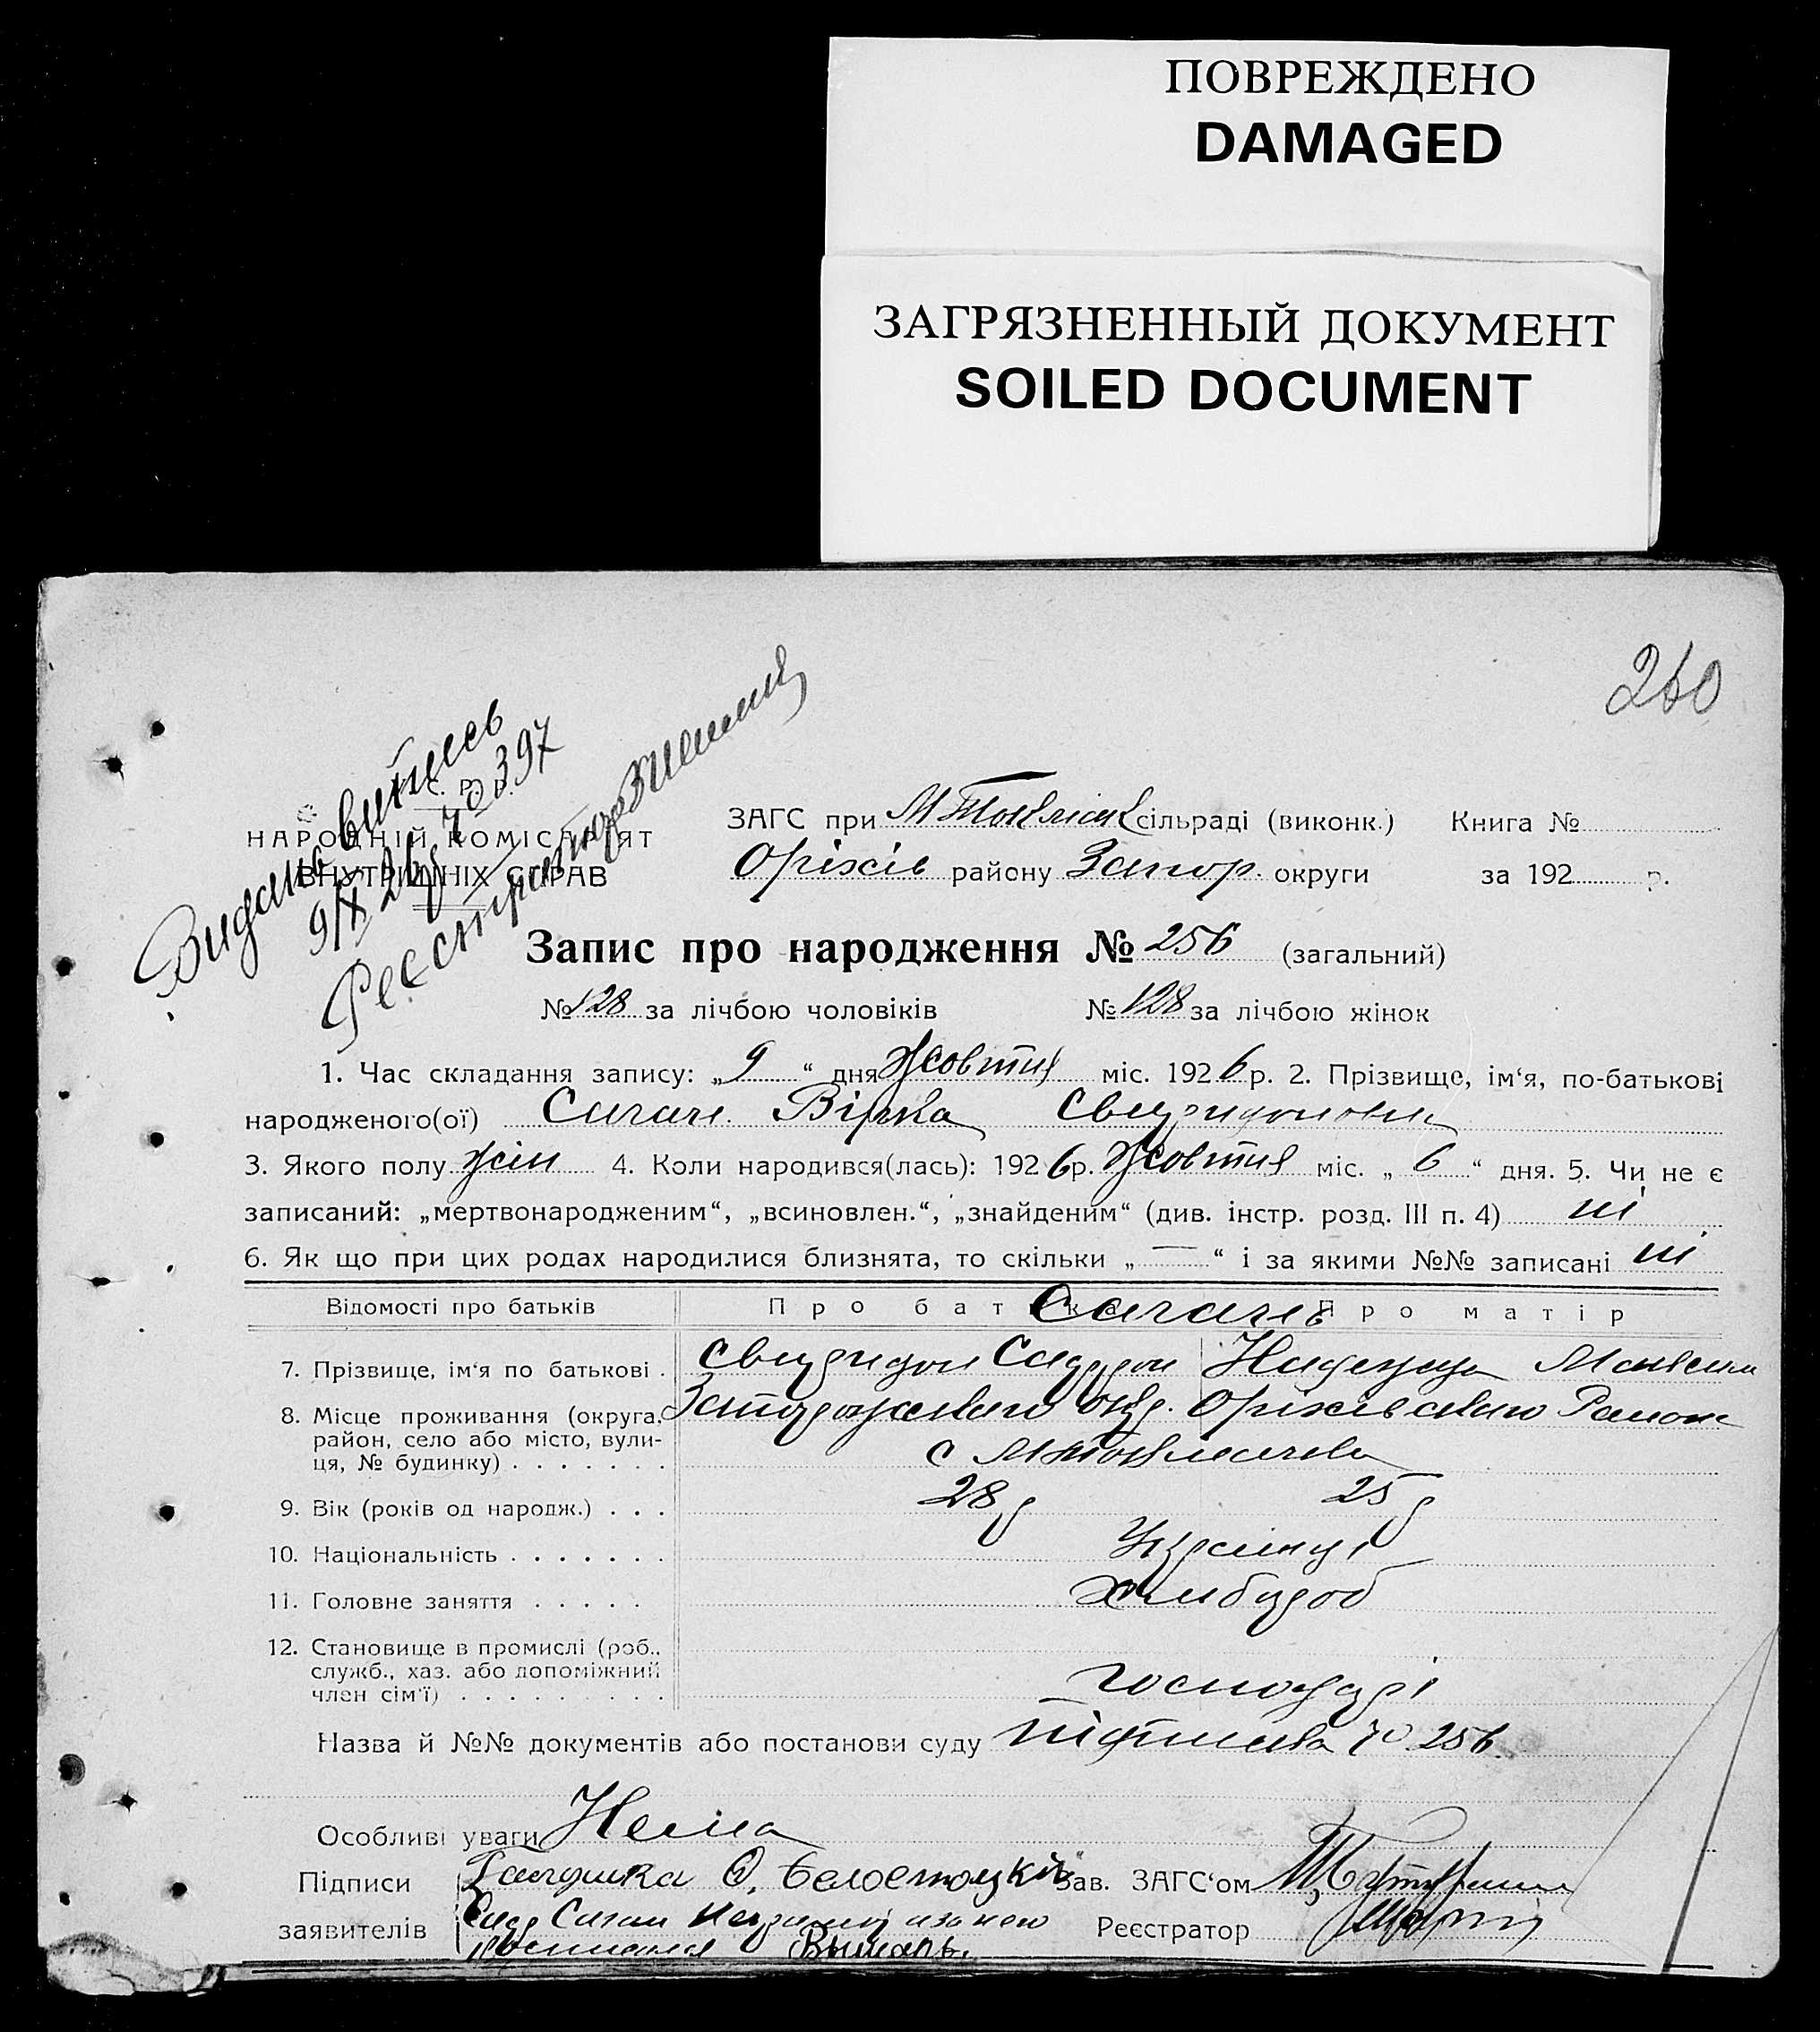 ПОВРЕЖДЕНО
DAMAGED
ЗАГРЯЗНЕННЫЙ ДОКУМЕНТ
SOILED DOCUMENT
260
Видань витись
9/X 26 р № 397
НАРОДНІЙ КОМІСАРІЯТ
ВНУТРІШНІХ СПРАВ
ЗАГС при сільраді (виконк.) Книга №
Оріхів району Запор. округи за 192 р.
Запис про народження № 256 (загальний)
№ 128 за лічбою чоловіків № 128 за лічбою жінок
1. Час складання запису: „9“ дня Жовтня міс. 1926 р. 2. Прізвище, ім‘я, по-батькові
народженого(ої) Сагач Вірка
3. Якого полу жін 4. Коли народився(лась): 1926 р. Жовтня міс. „6“ дня. 5. Чи не є
записаний: „мертвонародженим“, „всиновлен.“, „знайденим“ (див. інстр. розд. III п. 4) ні
6. Як що при цих родах народилися близнята, то скільки „—“ і за якими №№ записані ні
Відомості про батьків Про батька Про матір
Сагачь
7. Прізвище, ім‘я по батькові .
8. Місце проживання (округа, Оріхівського Района
район, село або місто, вули-
ця, № будинку) . . . . . . . с
9. Вік (років од народж.) . . . 28 р 25 р
10. Національність . . . . . . . Українці
11. Головне заняття . . . . . Хлібороб
12. Становище в промислі (роб.,
служб., хаз. або допоміжний
член сім‘ї) . . . . . . . . . господарі
Назва й №№ документів або постанови суду підписка № 256.
Особливі уваги Нема
Підписи О. Зав. ЗАГС‘ом
заявителів Сагач Реєстратор